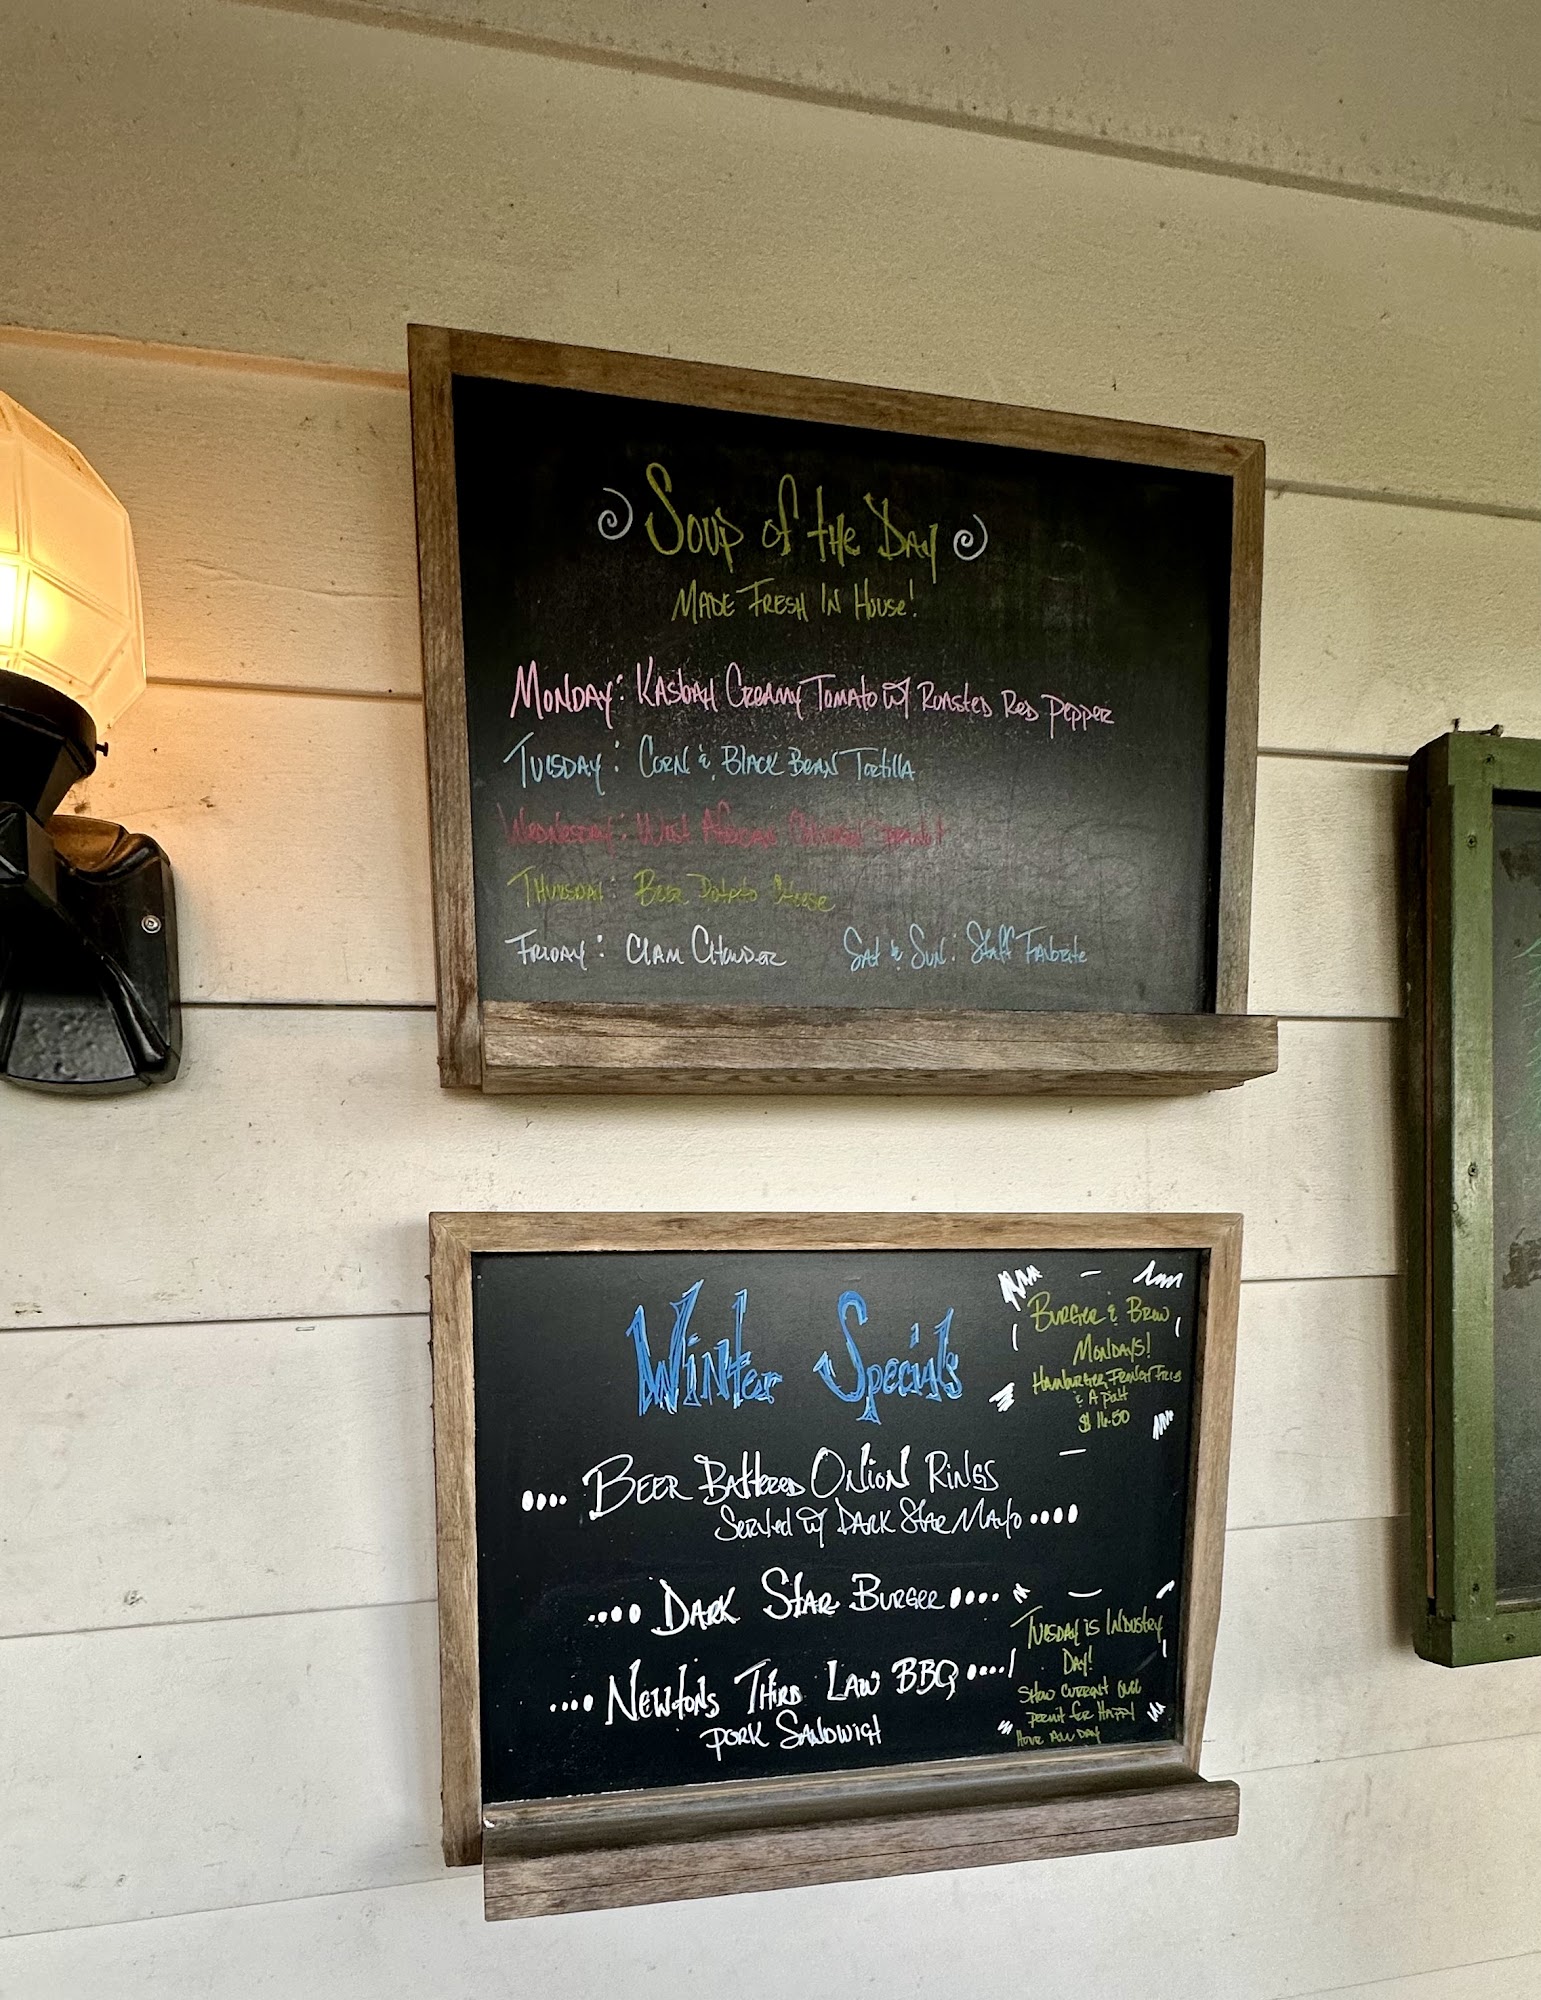 Soup of the Day
Made Fresh In House!
Monday: Kasbah Creamy Tomato w/ Roasted Red Pepper
Tuesday: Corn & Black Bean Tortilla
Wednesday: West African Chicken Peanut
Thursday: Beer Potato Cheese
Friday: Clam Chowder
Sat & Sun: Staff Favorite
Winter Specials
Beer Battered Onion Rings
Served w/ Dark Star Mayo
Dark Star Burger
Newtons Third Law BBQ
Pork Sandwich
Burger & Brew
Mondays!
Hamburger, French Fries
& A Pint
$16.50
Tuesday is Industry
Day!
Show current OLCC
permit for Happy
Hour All Day